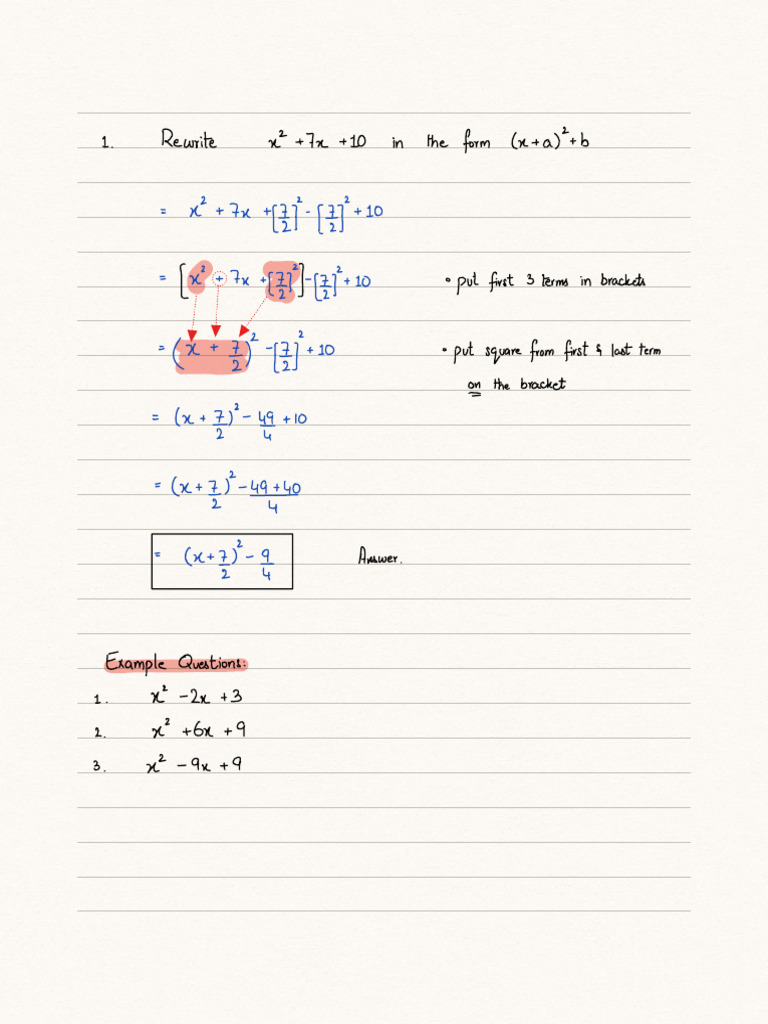 1. Rewrite x² + 7x + 10 in the form (x + a)² + b
= x² + 7x + [7/2]² - [7/2]² + 10
= [x² + 7x + [7/2]²] - [7/2]² + 10 • put first 3 terms in brackets
= (x + 7/2)² - [7/2]² + 10 • put square from first & last term
on the bracket
= (x + 7/2)² - 49/4 + 10
= (x + 7/2)² - 49 + 40/4
= (x + 7/2)² - 9/4 Answer.
Example Questions:
1. x² - 2x + 3
2. x² + 6x + 9
3. x² - 9x + 9